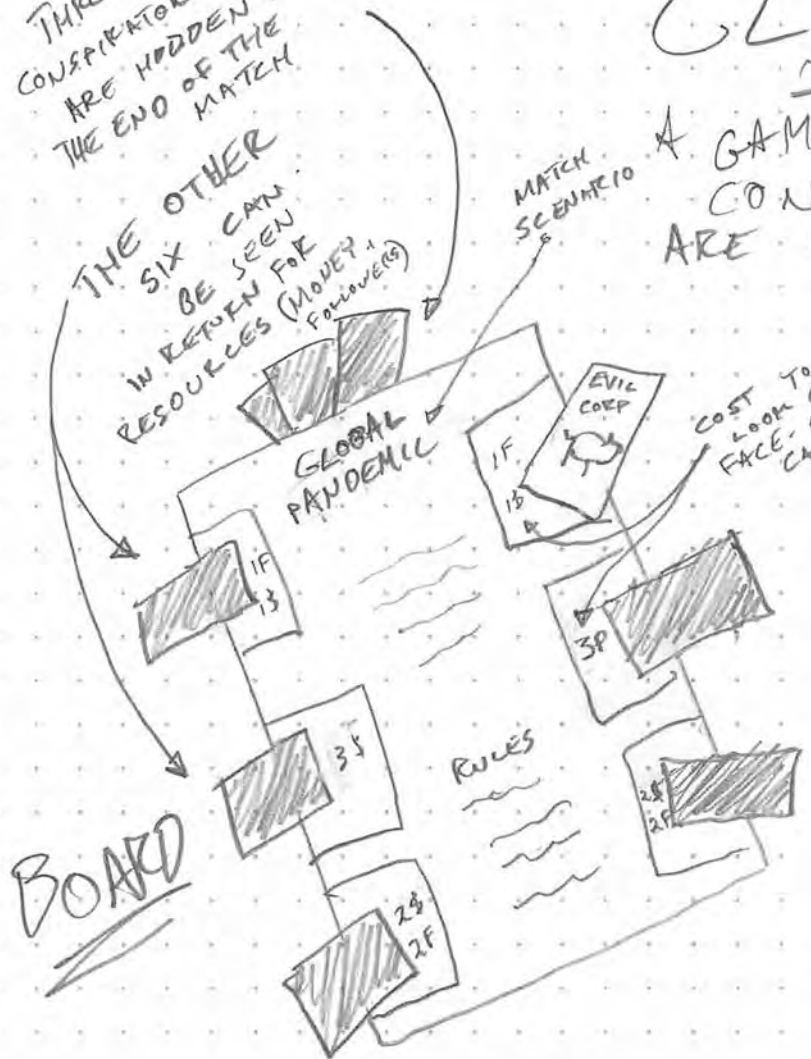 THRE
CONSPIRATOR
ARE HIDDEN
THE END OF THE
MATCH
THE OTHER
SIX CAN
BE SEEN
IN RETURN FOR
RESOURCES (MONEY,
FOLLOWERS)
MATCH
SCENARIO
CL
A GAM
CON
ARE
GLOBAL
PANDEMIC
EVIL
CORP
1F
1$
COST TO
LOOK
FACE-
CA
1F
1$
3P
3$
RULES
2$
2F
2$
2F
BOARD